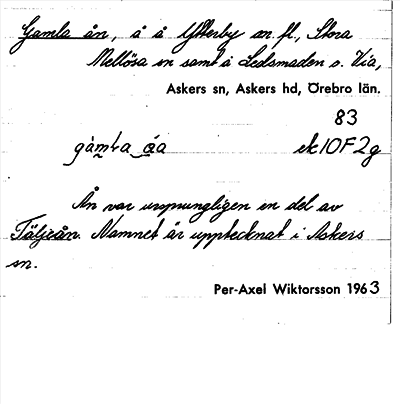 Gamla ån, å å Ytterby m.fl., Stora
Mellösa sn samt å Ledsmaden o. Via,
Askers sn, Askers hd, Örebro län.
83
ek 10F2g
Ån var ursprungligen en del av
Täljeån. Namnet är upptecknat i Askers
sn.
Per-Axel Wiktorsson 1963